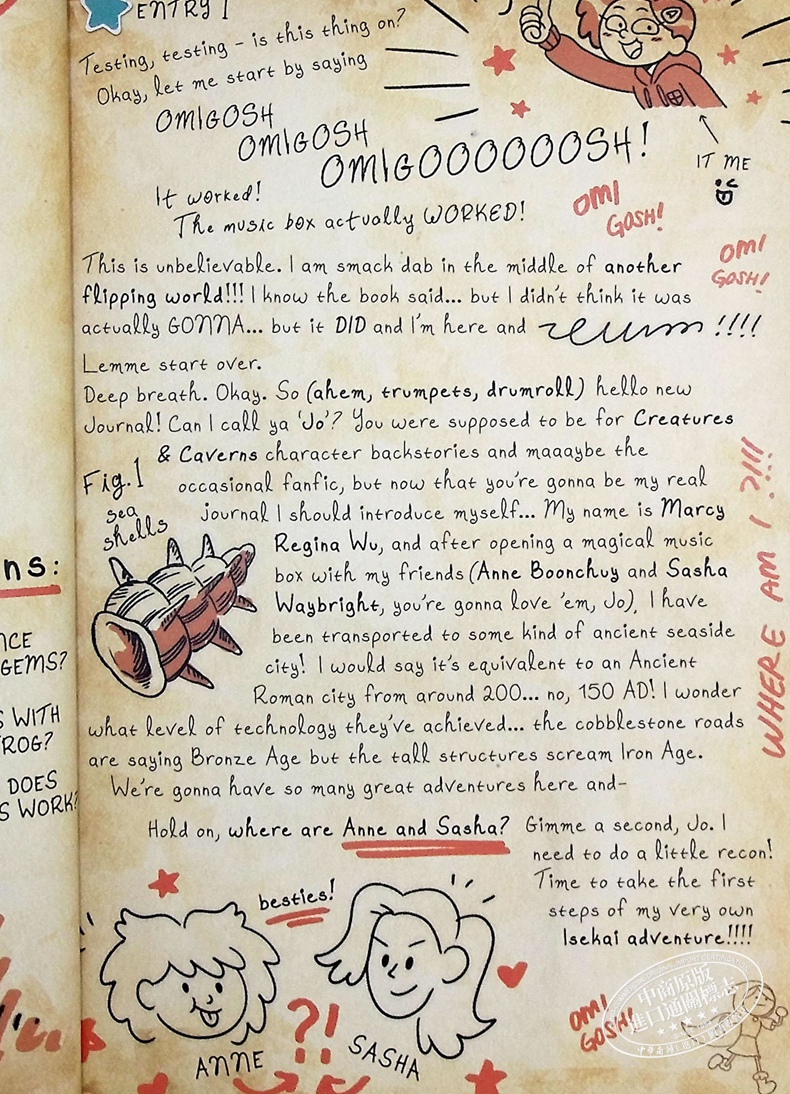 ENTRY 1
Testing, testing – is this thing on?
Okay, let me start by saying
OMIGOSH
OMIGOSH
OMIGOOOOOOSH!
IT ME
It worked!
The music box actually WORKED!
OMI
GOSH!
OMI
GOSH!
This is unbelievable. I am smack dab in the middle of another
flipping world!!! I know the book said... but I didn't think it was
actually GONNA... but it DID and I'm here and !!!!
Lemme start over.
Deep breath. Okay. So (ahem, trumpets, drumroll) hello new
Journal! Can I call ya 'Jo'? You were supposed to be for Creatures
& Caverns character backstories and maaaybe the
occasional fanfic, but now that you're gonna be my real
journal I should introduce myself... My name is Marcy
Regina Wu, and after opening a magical music
box with my friends (Anne Boonchuy and Sasha
Waybright, you're gonna love 'em, Jo), I have
been transported to some kind of ancient seaside
city! I would say it's equivalent to an Ancient
Roman city from around 200... no, 150 AD! I wonder
what level of technology they've achieved... the cobblestone roads
are saying Bronze Age but the tall structures scream Iron Age.
We're gonna have so many great adventures here and-
Fig.1
sea
shells
WHERE AM I ?!!!
Hold on, where are Anne and Sasha? Gimme a second, Jo. I
need to do a little recon!
Time to take the first
steps of my very own
Isekai adventure!!!!
besties!
?!
ANNE
SASHA
OMI
GOSH!
ns:
NCE
GEMS?
S WITH
ROG?
DOES
S WORK?
中商原版
進口通關標志